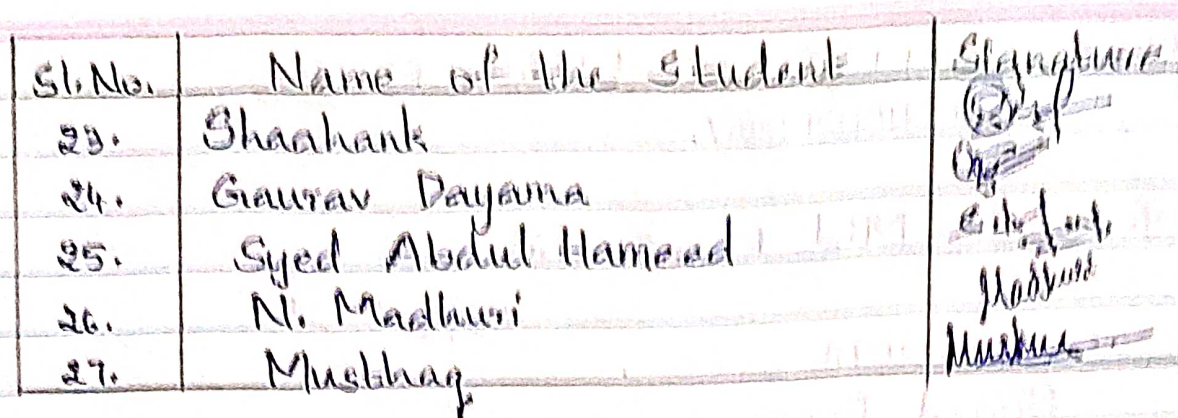 Sl. No. Name of the Student Signature
23. Shashank
24. Gaurav Dayama
25. Syed Abdul Hameed
26. N. Madhuri Madhuri
27. Mushtaq